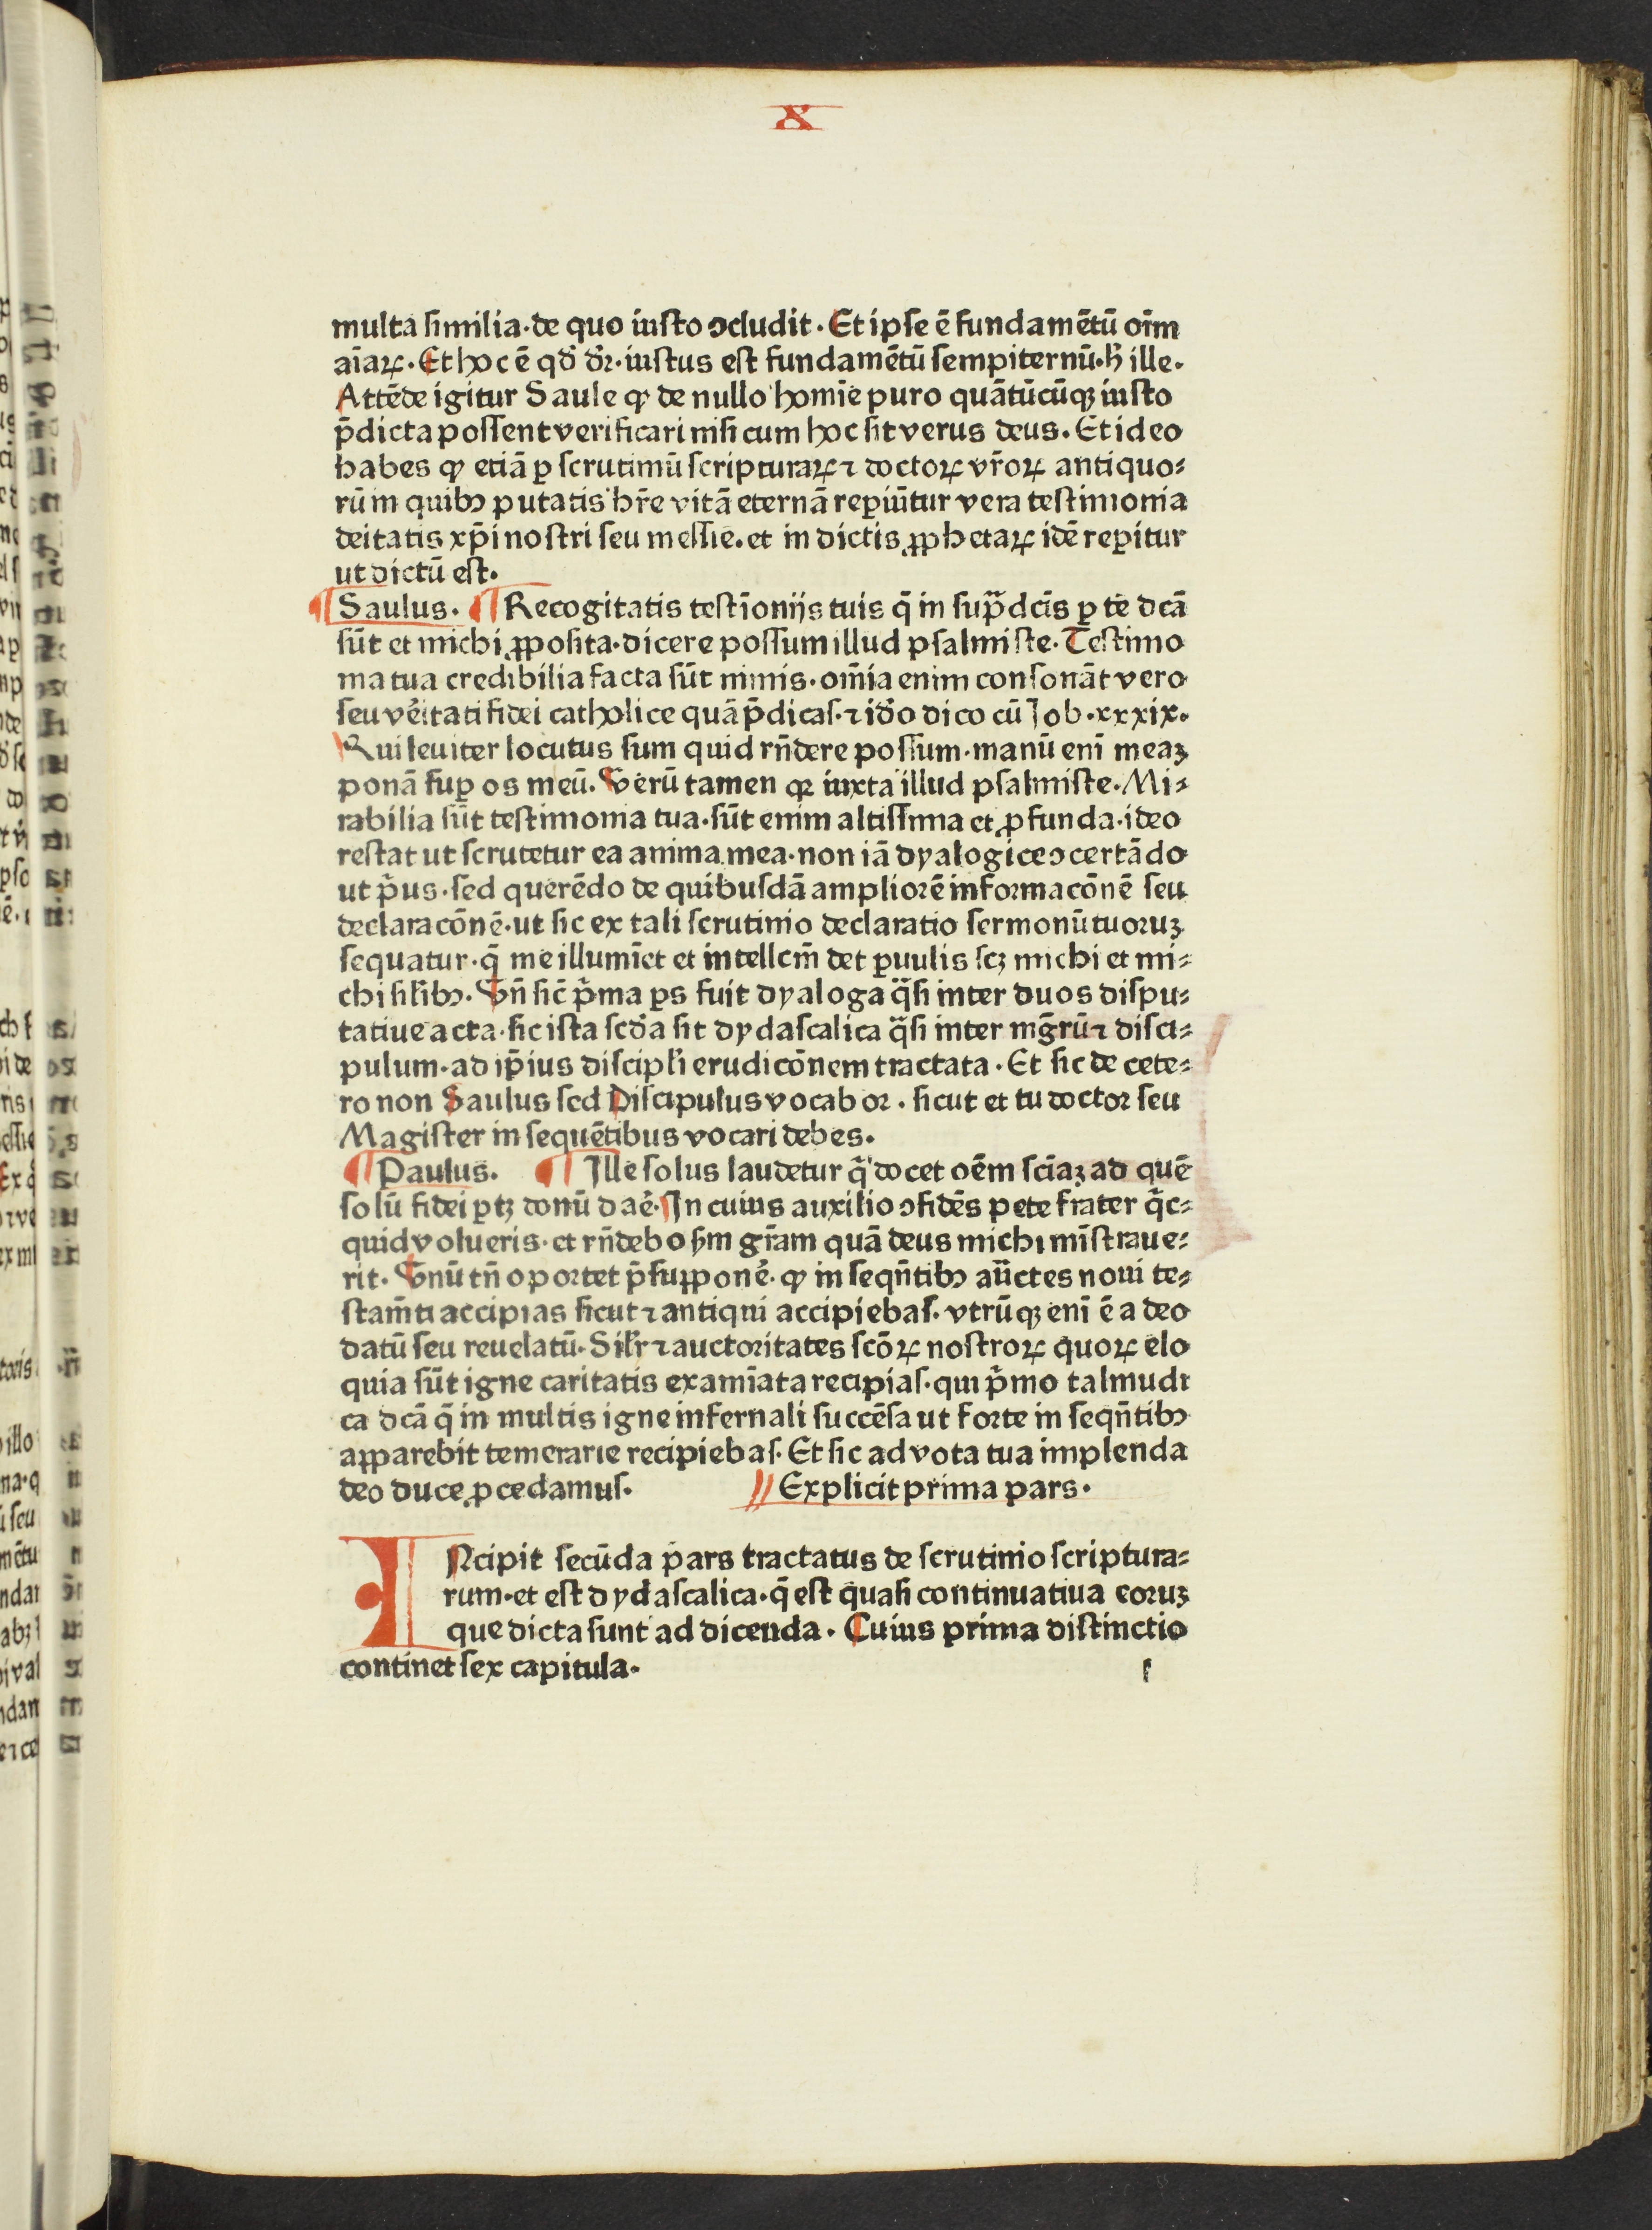 X
multa similia·de quo iusto ↄcludit·Et ipse ē fundamētū oīm
aīaꝝ·Et hoc ē qđ dr̄·iustus est fundamētū sempiternū·h̄ ille·
Attēde igitur Saule ꝙ de nullo homīe puro quātūcūqꝫ iusto
p̄dicta possent verificari nisi cum hoc sit verus deus. Et ideo
habes ꝙ etiā ꝑ scrutiniū scripturaꝝ ⁊ doctoꝝ vr̄oꝝ antiquo⸗
rū in quibꝰ putatis hr̄e vitā eternā reꝑiūtur vera testimonia
deitatis xp̄i nostri seu messie. et in dictis ꝓphetaꝝ idē reꝑitur
ut dictū est.
¶ Saulus. ¶ Recogitatis testīoniis tuis q̄ in sup̄dcīs ꝑ te dcā
sūt et michi ꝓposita·dicere possum illud psalmiste·Testimo
nia tua credibilia facta sūt nimis·om̄ia enim consonāt vero
seu vēitati fidei catholice quā p̄dicas·⁊ iđo dico cū Job·xxxix·
Qui leuiter locutus sum quid rn̄dere possum·manū enī meaꝫ
ponā suꝑ os meū. Verū tamen qꝛ iuxta illud psalmiste·Mi⸗
rabilia sūt testimonia tua·sūt enim altissima et ꝓfunda·ideo
restat ut scrutetur ea anima mea·non iā dyalogice ↄcertādo
ut p̄us·sed querēdo de quibusdā ampliorē informacōnē seu
declaracōnē·ut sic ex tali scrutinio declaratio sermonū tuoruꝫ
sequatur·q̄ me illumīet et intellcm̄ det ꝑuulis scꝫ michi et mi⸗
chi silibꝰ. Vn̄ sic̄ p̄ma ꝑs fuit dyaloga q̄si inter duos dispu⸗
tatiue acta·sic ista scđa sit dydascalica q̄si inter mgr̄ū ⁊ disci⸗
pulum·ad ip̄ius discipli erudicōnem tractata·Et sic de cete⸗
ro non Saulus sed Discipulus vocabor·sicut et tu doctor seu
Magister in sequētibus vocari debes.
¶ Paulus. ¶ Ille solus laudetur q̄ docet oēm scīaꝫ ad quē
solū fidei ꝑtꝫ donū daē·In cuius auxilio ↄfidēs pete frater q̄c⸗
quid volueris·et rn̄debo sm̄ gr̄am quā deus michi mīstraue⸗
rit. Vnū tn̄ oportet p̄supponē·ꝙ in seqn̄tibꝰ auc̄tes noui te⸗
stam̄ti accipias sicut ⁊ antiqui accipiebas·vtrūqꝫ enī ē a deo
datū seu reuelatū·Silr ⁊ auctoritates scōꝝ nostroꝝ quoꝝ elo
quia sūt igne caritatis examīata recipias·qui p̄mo talmudi
ca dcā q̄ in multis igne infernali succēsa ut forte in seqn̄tibꝰ
apparebit temerarie recipiebas·Et sic ad vota tua implenda
deo duce ꝓcedamus. // Explicit prima pars.
INcipit secūda pars tractatus de scrutinio scriptura⸗
rum·et est dydascalica·q̄ est quasi continuatiua eoruꝫ
que dicta sunt ad dicenda. Cuius prima distinctio
continet sex capitula.